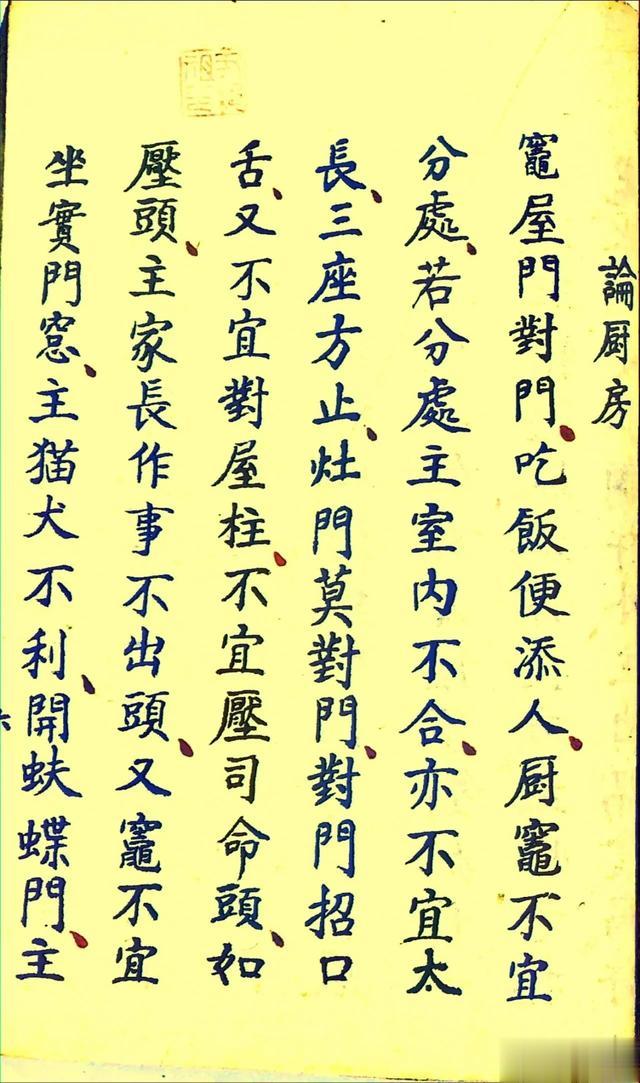 論厨房
竈屋門對門吃飯便添人厨竈不宜
分處若分處主室内不合亦不宜太
長三座方止灶門莫對門對門招口
舌又不宜對屋柱不宜壓司命頭如
壓頭主家長作事不出頭又竈不宜
坐實門窓主猫犬不利開蚨蝶門主